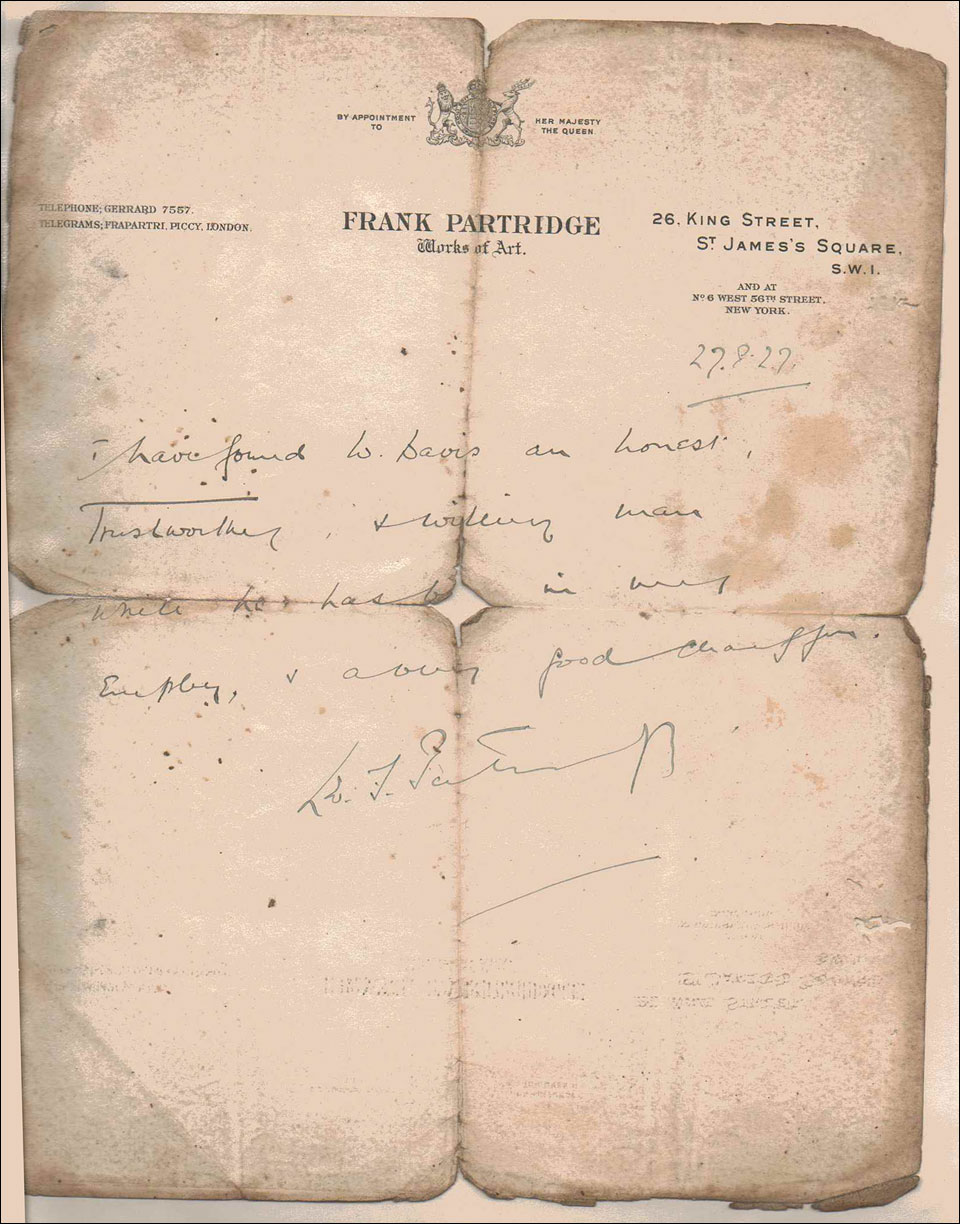 BY APPOINTMENT
TO
HER MAJESTY
THE QUEEN
TELEPHONE; GERRARD 7557.
TELEGRAMS; FRAPARTRI, PICCY, LONDON.
FRANK PARTRIDGE
Works of Art.
26, KING STREET,
ST JAMES'S SQUARE,
S.W.1.
AND AT
No 6 WEST 56TH STREET,
NEW YORK.
27.9.27
I have found W. Davis an honest,
Trustworthy, & willing man
while he has in my
Employ, & a very good chauffeur.